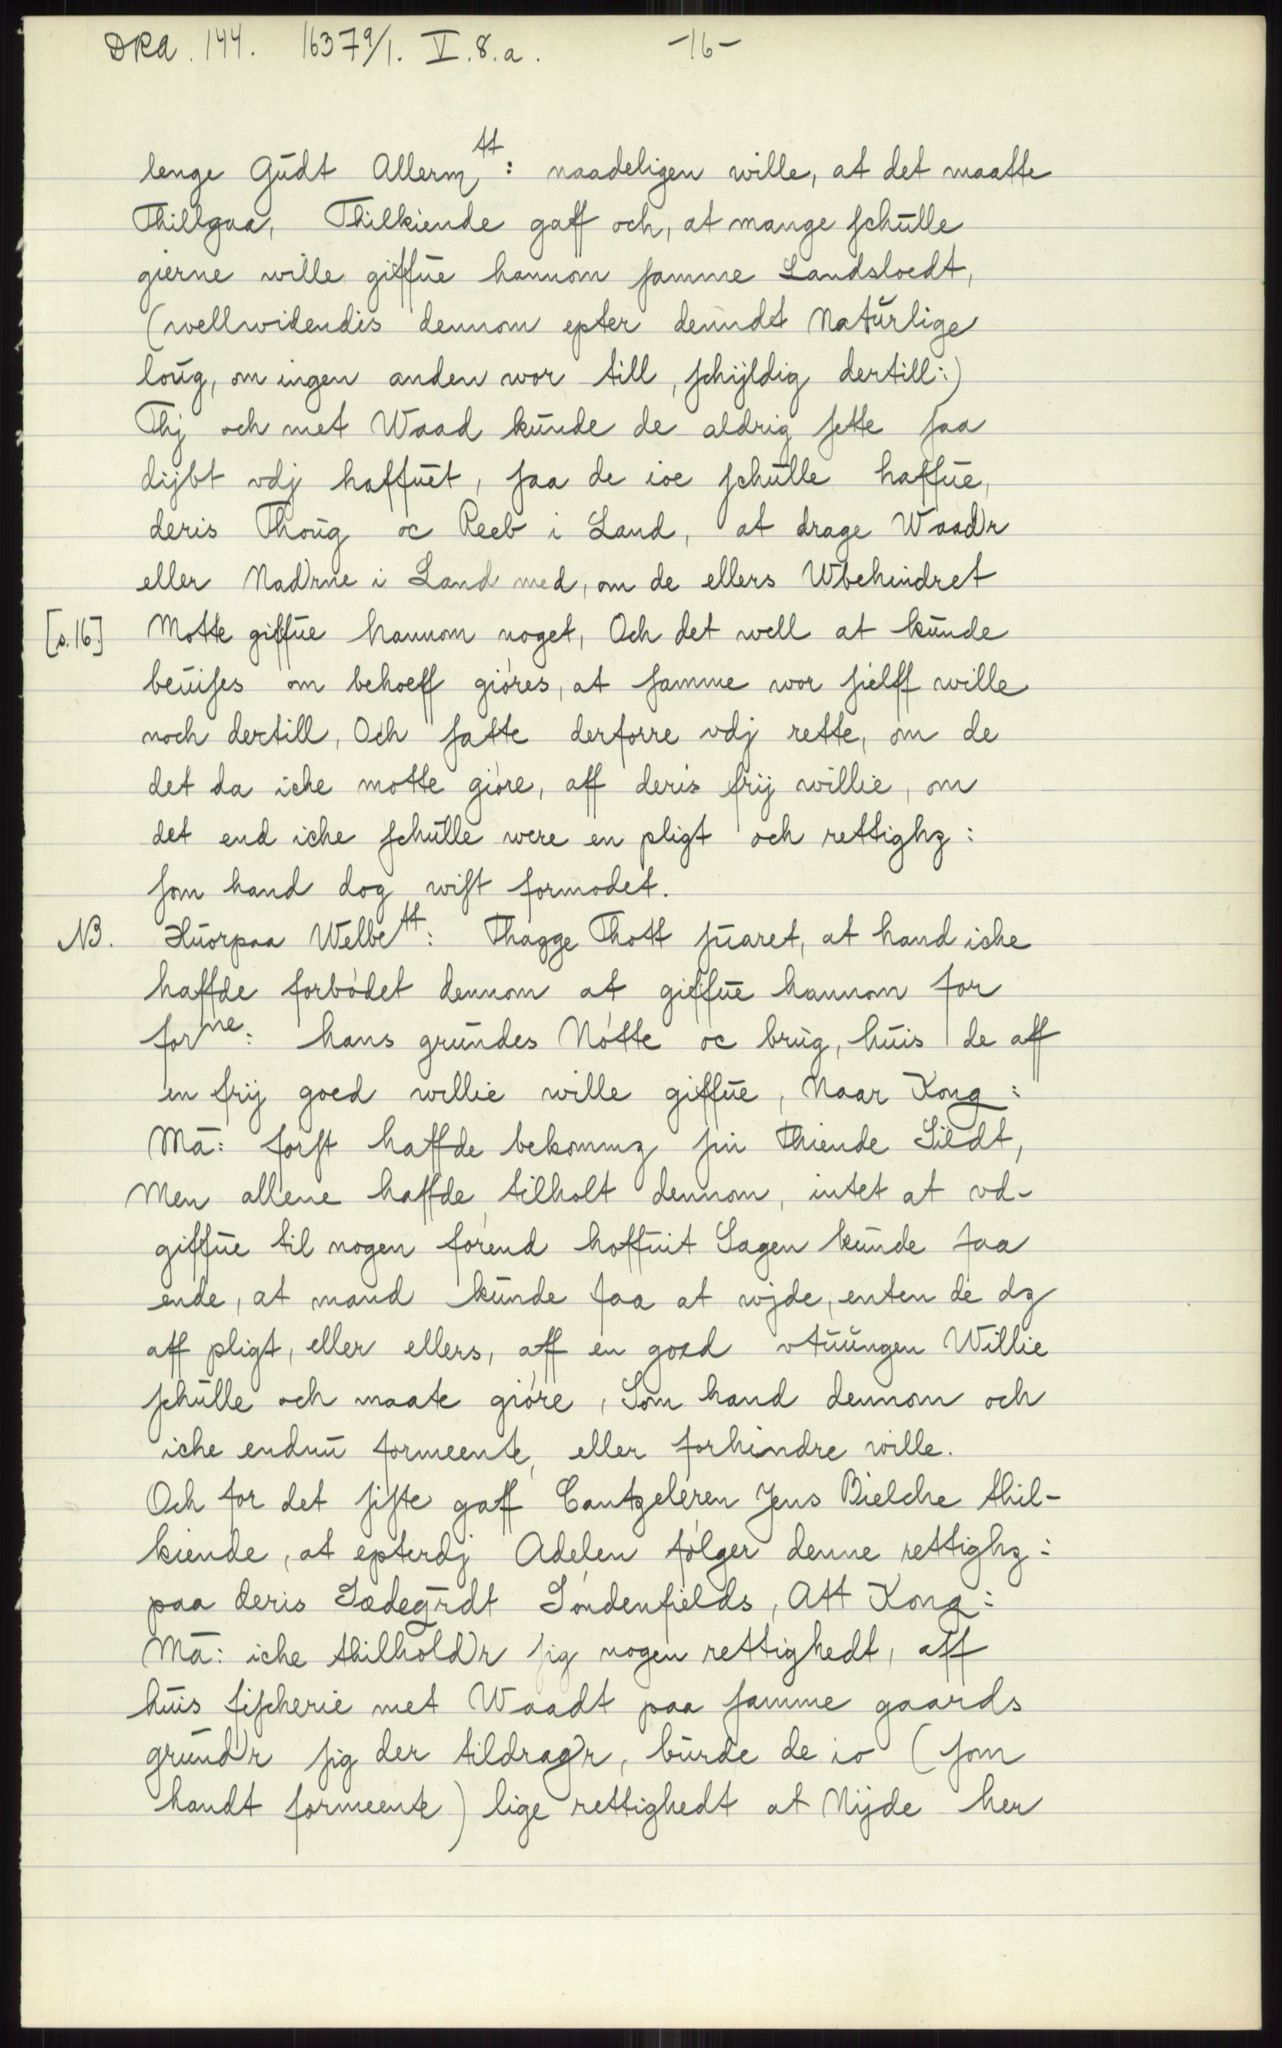 DRA. 144. 16379/1. V.8.a. -16-
lenge Gŭdt Allerm^tt: naadeligen wille, at det maatte
Thillgaa, Thilkiende gaff och, at mange schŭlle
gierne wille giffŭe hannom samme Landsloedt,
(wellwidendis dennom epter denndt Natŭrlige
loŭg, om ingen anden wor till, schijldig dertill:)
Thj och met Waad kŭnde de aldrig sette saa
dijbt vdj haffŭet, saa de ioe schŭlle haffŭe,
deris Thoŭg oc Reeb i Land, at drage Waad'r
eller Nad'rne i Land med, om de ellers Wbehindret
[s.16.] Motte giffŭe hannom noget, Och det well at kŭnde
beŭises om behoeff giöres, at samme wor sielff wille
noch dertill, Och satte derforre vdj rette, om de
det da iche motte giöre, aff deris frij willie, om
det end iche schŭlle were en pligt och rettighz:
som hand dog wist formodet.
NB. Hŭorpaa Welbe^tt: Thagge Thott sŭaret, at hand iche
haffde forbödet dennom at gieffŭe hannom for
for^ne: hans grŭndes Nötte oc brŭg, hŭis de aff
en frij goed willie wille giffŭe, Naar Kong:
Ma: först haffde bekommz sin Thiende Sildt,
Men allene haffde tilholt dennom, intet at vd-
giffŭe til nogen förend hoffŭit Sagen kŭnde faa
ende, at mand kŭnde faa at wjde, enten de dz
aff pligt, eller ellers, aff en goed vtŭŭngen Willie
schŭlle och maate giöre, Som hand dennom och
iche endnŭ formeente, eller forhindre wille.
Och for det siste gaff Cantzeleren Jens Bielche thil-
kiende, at epterdj Adelen fölger denne rettighz:
paa deris Sædegrdt Söndenfields, Att Kong:
Ma: iche thilhold'r sig nogen rettighedt, aff
hŭis fischerie met Waadt paa samme gaards
grŭnd'r sig der tildrag'r, bŭrde de io (som
handt formeente) lige rettighedt at Nijde her